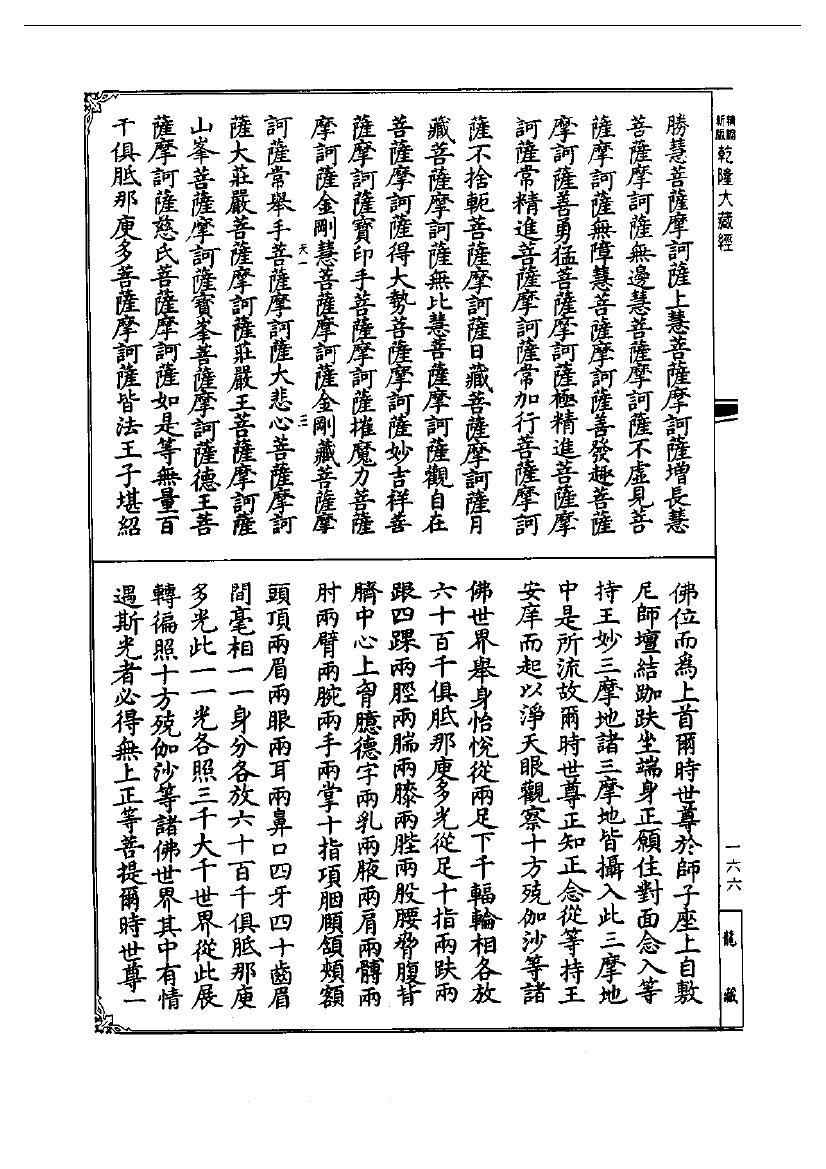 精縮新版
乾隆大藏經
勝慧菩薩摩訶薩上慧菩薩摩訶薩增長慧
菩薩摩訶薩無邊慧菩薩摩訶薩不虛見菩
薩摩訶薩無障慧菩薩摩訶薩善發趣菩薩
摩訶薩善勇猛菩薩摩訶薩極精進菩薩摩
訶薩常精進菩薩摩訶薩常加行菩薩摩訶
薩不捨軛菩薩摩訶薩日藏菩薩摩訶薩月
藏菩薩摩訶薩無比慧菩薩摩訶薩觀自在
菩薩摩訶薩得大勢菩薩摩訶薩妙吉祥菩
薩摩訶薩寶印手菩薩摩訶薩摧魔力菩薩
摩訶薩金剛慧菩薩摩訶薩金剛藏菩薩摩
天一 三
訶薩常舉手菩薩摩訶薩大悲心菩薩摩訶
薩大莊嚴菩薩摩訶薩莊嚴王菩薩摩訶薩
山峯菩薩摩訶薩寶峯菩薩摩訶薩德王菩
薩摩訶薩慈氏菩薩摩訶薩如是等無量百
千俱胝那庾多菩薩摩訶薩皆法王子堪紹
佛位而爲上首爾時世尊於師子座上自敷
尼師壇結跏趺坐端身正願住對面念入等
持王妙三摩地諸三摩地皆攝入此三摩地
中是所流故爾時世尊正知正念從等持王
安庠而起以淨天眼觀察十方殑伽沙等諸
佛世界舉身怡悅從兩足下千輻輪相各放
六十百千俱胝那庾多光從足十指兩趺兩
跟四踝兩脛兩腨兩膝兩䏶兩股腰脅腹背
臍中心上胷臆德字兩乳兩腋兩肩兩髆兩
肘兩臂兩腕兩手兩掌十指項胭頤頷頰額
頭頂兩眉兩眼兩耳兩鼻口四牙四十齒眉
間毫相一一身分各放六十百千俱胝那庾
多光此一一光各照三千大千世界從此展
轉徧照十方殑伽沙等諸佛世界其中有情
遇斯光者必得無上正等菩提爾時世尊一
一六六
龍藏